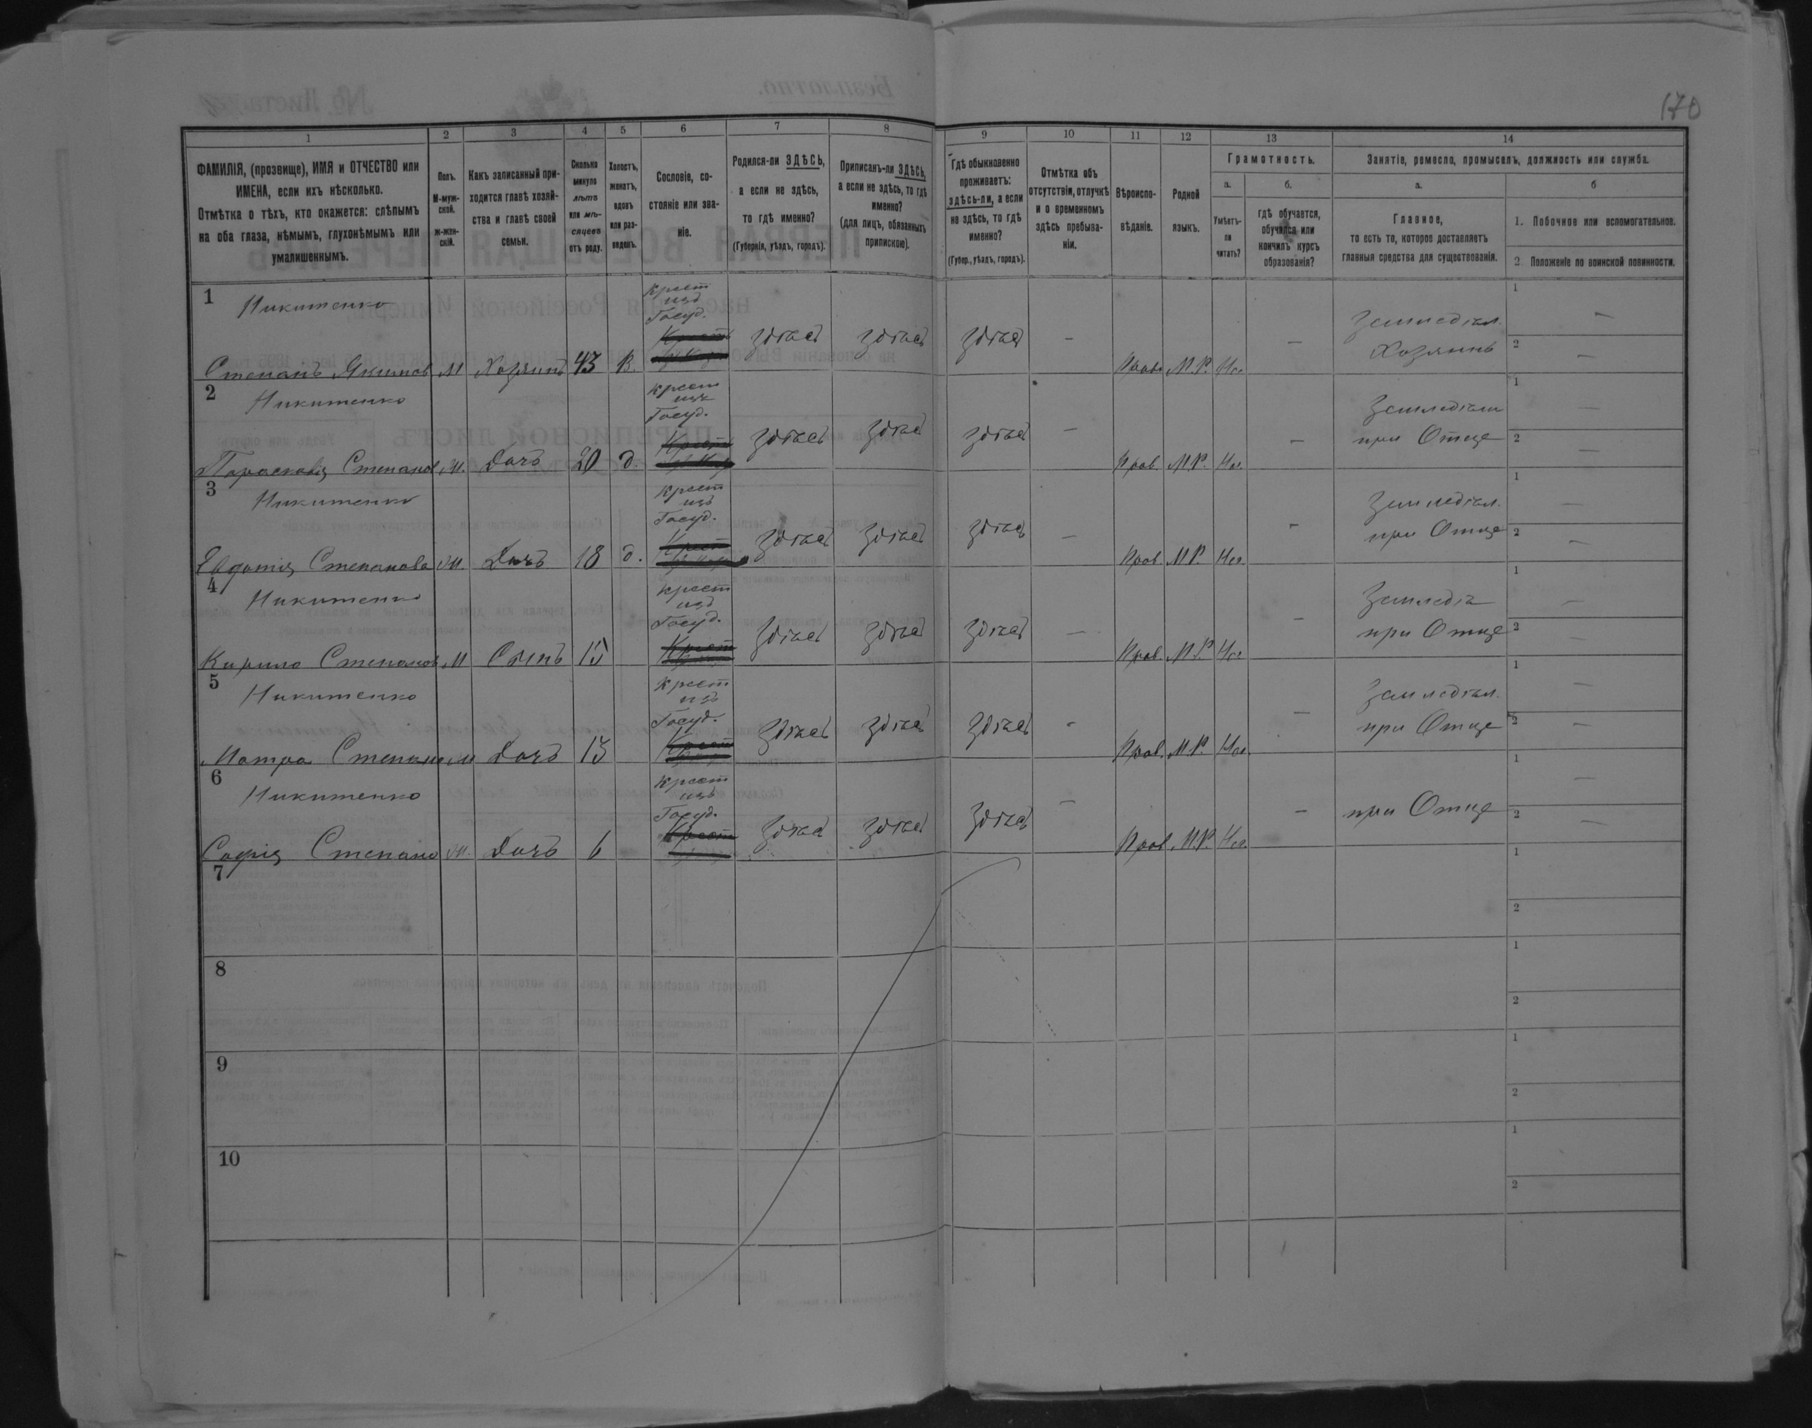 170
1 2 3 4 5 6 7 8 9 10 11 12 13 14
ФАМИЛІЯ, (прозвище), ИМЯ и ОТЧЕСТВО или
ИМЕНА, если ихъ нѣсколько.
Отмѣтка о тѣхъ, кто окажется: слѣпымъ
на оба глаза, нѣмымъ, глухонѣмымъ или
умалишеннымъ.
Полъ.
М-муж-
ской.
ж-жен-
скій.
Какъ записанный при-
ходится главѣ хозяй-
ства и главѣ своей
семьи.
Сколько
минуло
лѣтъ
или мѣ-
сяцевъ
отъ роду.
Холостъ,
женатъ,
вдовъ
или раз-
веденъ.
Сословіе, со-
стояніе или зва-
ніе.
Родился-ли ЗДѢСЬ,
а если не здѣсь,
то гдѣ именно?
(Губернія, уѣздъ, городъ).
Приписанъ-ли ЗДѢСЬ,
а если не здѣсь, то гдѣ
именно?
(для лицъ, обязанныхъ
припискою).
Гдѣ обыкновенно
проживаетъ:
здѣсь-ли, а если
не здѣсь, то гдѣ
именно?
(Губер., уѣздъ, городъ).
Отмѣтка объ
отсутствіи, отлучкѣ
и о временномъ
здѣсь пребыва-
ніи.
Вѣроиспо-
вѣданіе.
Родной
языкъ.
Грамотность.
а.
Умѣетъ-
ли
читать?
б.
гдѣ обучается,
обучался или
кончилъ курсъ
образованія?
Занятіе, ремесло, промыселъ, должность или служба.
а.
Главное,
то есть то, которое доставляетъ
главныя средства для существованія.
б
1. Побочное или вспомогательное.
2. Положеніе по воинской повинности.
1 Никитенко
Степанъ Якимов М Хозяинъ 43 в. Крест изъ Госуд. здѣсь здѣсь здѣсь — Прав. М.Р. Нѣт — Земледѣл. Хозяинъ 1 — 2 —
2 Никитенко
Параскавія Степанов Ж. Дочь 20 д. Крест изъ Госуд. здѣсь здѣсь здѣсь — Прав. М.Р. Нѣт — Земледѣл при Отце 1 — 2 —
3 Никитенко
Евдотія Степанова Ж Дочь 18 д. Крест изъ Госуд. здѣсь здѣсь здѣсь — Прав. М.Р. Нѣт — Земледѣл. при Отце 1 — 2 —
4 Никитенко
Кирило Степанов М Сынъ 15 Крест изъ Госуд. здѣсь здѣсь здѣсь — Прав. М.Р. Нѣт — Земледѣ при Отце 1 — 2 —
5 Никитенко
Мотра Степано Ж Дочь 13 Крест изъ Госуд. здѣсь здѣсь здѣсь - Прав. М.Р. Нѣт — Земледѣл. при Отце 1 — 2 —
6 Никитенко
Софія Степано Ж. Дочь 6 Крест изъ Госуд. здѣсь здѣсь здѣсь — Прав. М.Р. Нѣт — при Отце 1 — 2 —
7 1
2
8 1
2
9 1
2
10 1
2